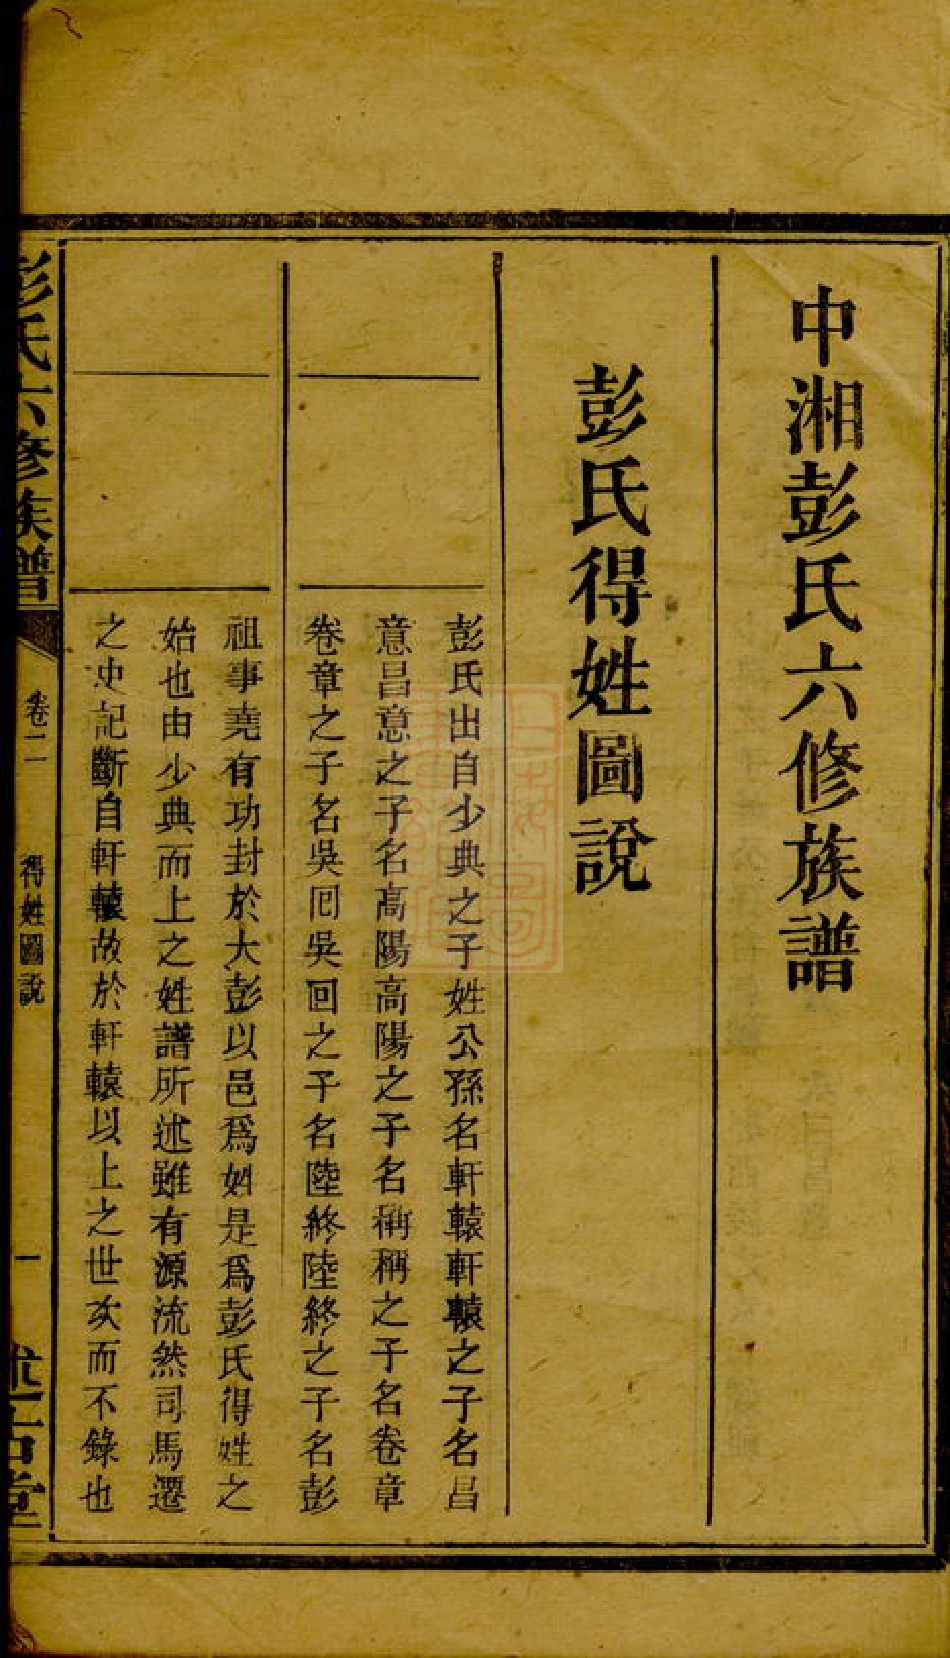 中湘彭氏六修族譜
彭氏得姓圖說
彭氏出自少典之子姓公孫名軒轅軒轅之子名昌
意昌意之子名高陽高陽之子名稱稱之子名卷章
卷章之子名吳囘吳回之子名陸終陸終之子名彭
祖事堯有功封於大彭以邑爲姓是爲彭氏得姓之
始也由少典而上之姓譜所述雖有源流然司馬遷
之史記斷自軒轅故於軒轅以上之世次而不錄也
彭氏六修族譜
卷二
得姓圖說
一
述古堂